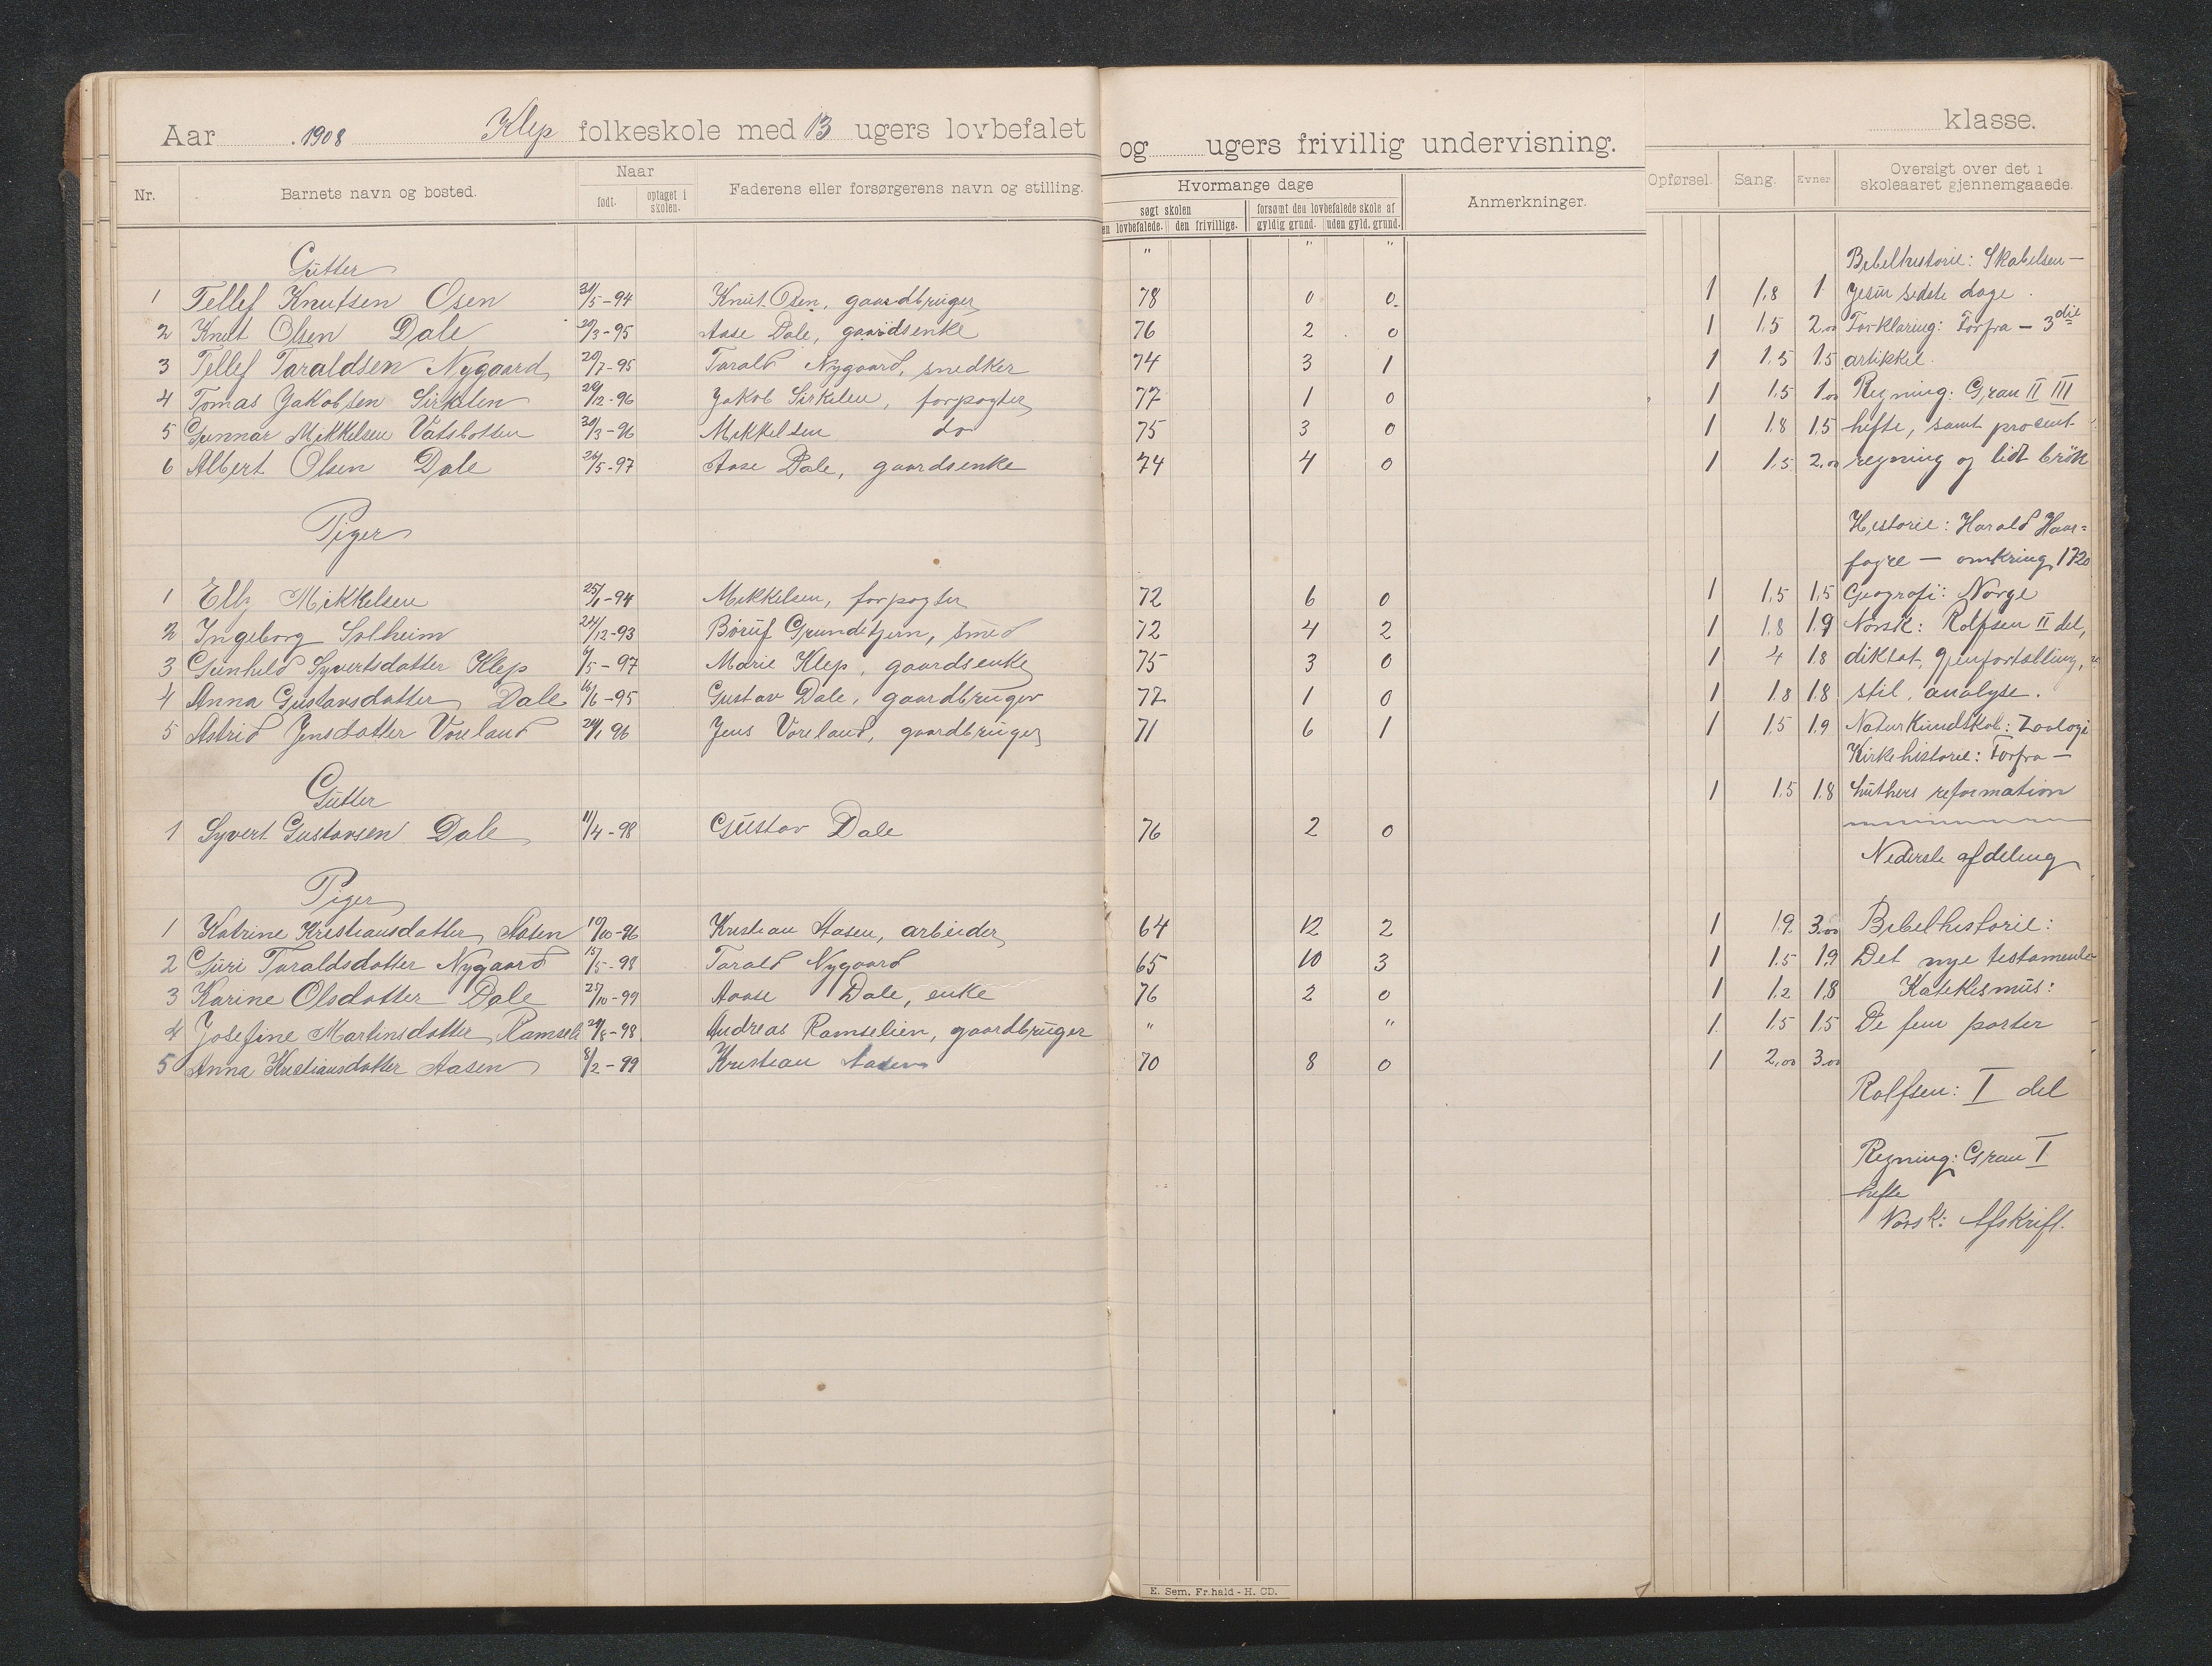 Aar 1908 Klep folkeskole med 13 ugers lovbefalet og ugers frivillig undervisning. klasse.
Nr. Barnets navn og bosted. Naar født. optaget i skolen. Faderens eller forsørgerens navn og stilling. Hvormange dage søgt skolen en lovbefalede. den frivillige. forsømt den lovbefalede skole af gyldig grund. uden gyld. grund. Anmerkninger. Opførsel. Sang. Evner Oversigt over det i skoleaaret gjennemgaaede.
" " "
Gutter Bibelhistorie: Skabelsen —
1 Tellef Knutsen Osen 31/5-94 Knut Osen, gaardbruger 78 0 0 1 1,8 1 Jesu sidste dage.
2 Knut Olsen Dale 20/3-95 Aase Dale, gaardsenke 76 2 0 1 1.5 2,00 Forklaring: Forfra — 3die
3 Tellef Taraldsen Nygaard 20/7-95 Tarald Nygaard, snedker 74 3 1 1 1.5 1.5 artikkel.
4 Tomas Jakobsen Sirkelen 29/12-96 Jakob Sirkelen, forpagter 77 1 0 1 1.5 1,00 Regning: Grau II III
5 Gunnar Mikkelsen Vatsbotten 30/3-96 Mikkelsen do 75 3 0 1 1.8 1.5 hefte, samt procent
6 Albert Olsen Dale 26/5-97 Aase Dale, gaardsenke 74 4 0 1 1.5 2,00 regning og lidt brøk
Piger Historie: Harald Haar=
fagre — omkring 1720
1 Elly Mikkelsen 25/1-94 Mikkelsen, forpagter 72 6 0 1 1,5 1,5 Geografi: Norge
2 Ingeborg Solheim 24/12-93 Børuf Grunditjern, smed 72 4 2 1 1.8 1.9 Norsk: Rolfsen II del,
3 Gunhild Syvertsdatter Klep 6/5-97 Marie Klep, gaardsenke 75 3 0 1 4 1.8 diktat, gjenfortælling,
4 Anna Gustavsdatter Dale 16/6-95 Gustav Dale, gaardbruger 77 1 0 1 1.8 1.8 stil, analyse.
5 Astrid Jensdatter Voreland 24/1 96 Jens Voreland, gaardbruger 71 6 1 1 1.5 1.9 Naturkundskab: Zoologi
Kirkehistorie: Forfra —
Gutter 1 1.5 1.8 Luthers reformation
1 Syvert Gustavsen Dale 11/4-98 Gustav Dale 76 2 0
Nederste afdeling
Piger
1 Katrine Kristiansdatter Aasen 19/10-96 Kristian Aasen, arbeider 64 12 2 1 1.9. 3,00 Bibelhistorie:
2 Guri Taraldsdatter Nygaard 15/5-98 Tarald Nygaard 65 10 3 1 1.5 1.9 Det nye testamente
3 Karine Olsdatter Dale 27/10-99 Aaase Dale, enke 76 2 0 1 1.2 1.8 Katekismus:
4 Josefine Martinsdatter Ramseli 29/8-98 Andreas Ramselien, gaardbruger " " 1. 1.5 1.5 De fem parter
5 Anna Kristiansdatter Aasen 8/2-99 Kristian Aasen 70 8 0 1 2,00 3,00
Rolfsen: I del
Regning: Grau I
hefte
Norsk: Afskrift.
E. Sem. Fr.hald - H. CD.